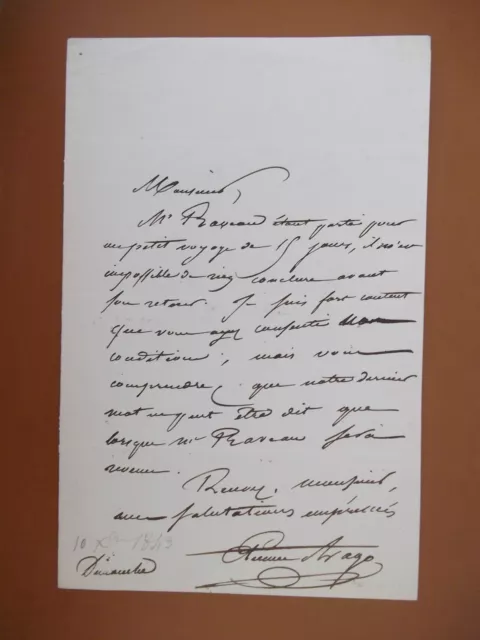 Monsieur,
Mr Raveau étant parti pour
un petit voyage de 15 jours, il m'est
impossible de rien conclure avant
son retour. Je suis fort content
que vous ayez consenti
condition; mais vous
comprendrez que notre dernier
mot ne peut être dit que
lorsque Mr Raveau sera
revenu.
Recevez, Monsieur,
mes salutations empressées
Etienne Arago
10 Xbre 1843
Dimanche